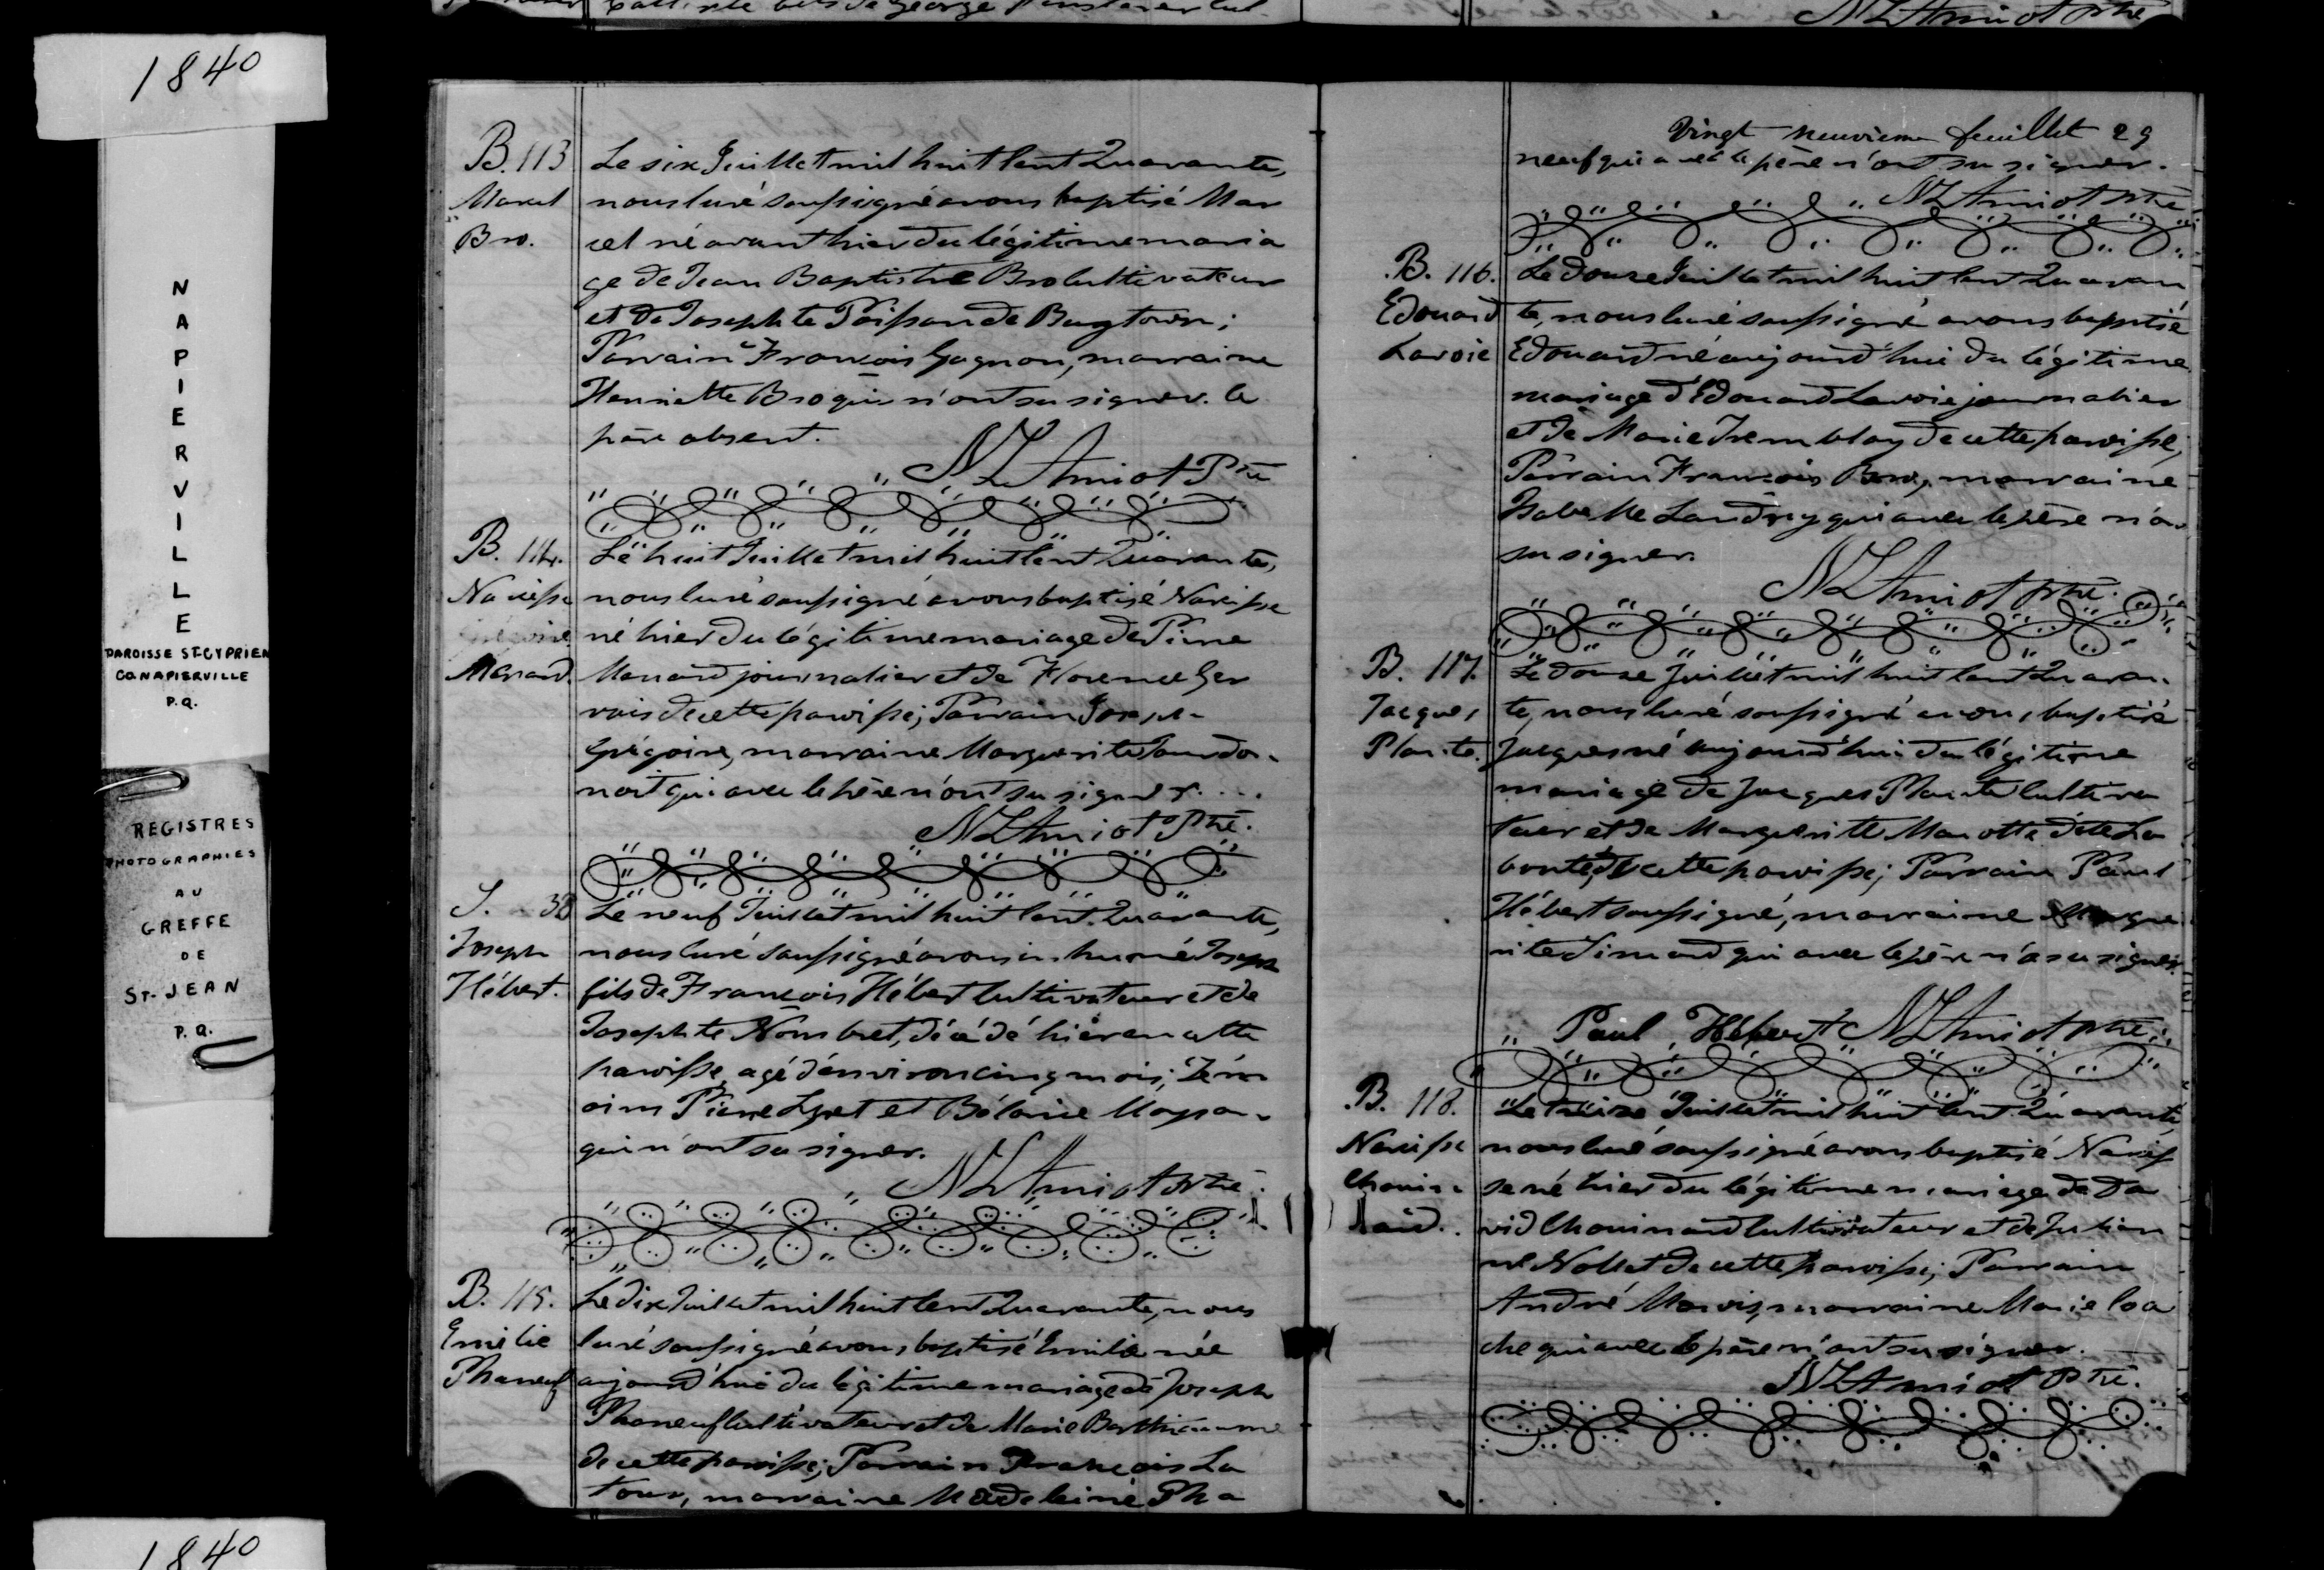 1840
NAPIERVILLE
PAROISSE ST-CYPRIEN
CO. NAPIERVILLE
P.Q.
REGISTRES
PHOTOGRAPHIES
AU
GREFFE
DE
ST-JEAN
P.Q.
1840
NZAmiot ptre
B. 113
Marcel
Bro.
Le six Juillet mil huit Cent Quarante,
nous Curé soussigné avons baptisé Mar
cel né avant hier du légitime maria
ge de Jean Baptiste Bro Cultivateur
et de Josephte Poissan de Bugtown;
Parrain François Gagnon, marraine
Henriette Bro qui n'ont su signer. le
père absent.
NZAmiot Ptre
B. 114.
Narcisse
Grégoire
Menard.
Le huit Juillet mil huit Cent Quarante,
nous Curé soussigné avons baptisé Narcisse
né hier du légitime mariage de Pierre
Menard journalier et de Florence Ger
vais de cette paroisse; Parrain
Grégoire, marraine Marguerite
noit qui avec le père n'ont su signer.
NZAmiot Ptre.
S. 38
Joseph
Hébert.
Le neuf Juillet mil huit Cent Quarante,
nous Curé soussigné avons inhumé Joseph
fils de François Hébert Cultivateur et de
Josephte décédé hier en cette
paroisse, agé d'environ cinq mois; Tém
oins Pierre et
qui n'ont su signer.
NZAmiot ptre.
B. 115.
Emélie
Phaneuf
Le dix Juillet mil huit Cent Quarante, nous
Curé soussigné avons baptisé Emilie née
aujourd'hui du légitime mariage de Joseph
Phaneuf Cultivateur et de Marie Berthiaume
de cette paroisse; Parrain François La
tour, marraine Madeleine Pha
Vingt neuvieme feuillet 29
neuf qui avec le père n'ont su signer.
NZAmiot ptre
B. 116.
Edouard
Lavoie
Le douze Juillet mil huit Cent Quaran
te, nous Curé soussigné avons baptisé
Edouard né aujourd'hui du légitime
mariage d'Edouard Lavoie journalier
et de Marie Tremblay de cette paroisse;
Parrain François Bro, marraine
Isabelle Landry qui avec le père n'a
su signer.
NZAmiot ptre.
B. 117.
Jacques
Plante.
Le douze Juillet mil huit Cent Quaran
te, nous Curé soussigné avons baptisé
Jacques né aujourd'hui du légitime
mariage de Jacques Plante Cultiva
teur et de Marguerite Marotte dite La
bonté, de cette paroisse; Parrain Paul
Hébert soussigné, marraine Margue
rite Simard qui avec le père n'a su signer.
Paul Hébert NZAmiot ptre.
B. 118.
Narcisse
Chouin
nard.
Le treize Juillet mil huit Cent Quarante,
nous Curé soussigné avons baptisé Narcis
se né hier du légitime mariage de Da
vid Chouinard Cultivateur et de Julian
ne Nollet de cette paroisse; Parrain
André marraine Marie Roa
che qui avec le père n'ont su signer.
NZAmiot Ptre.